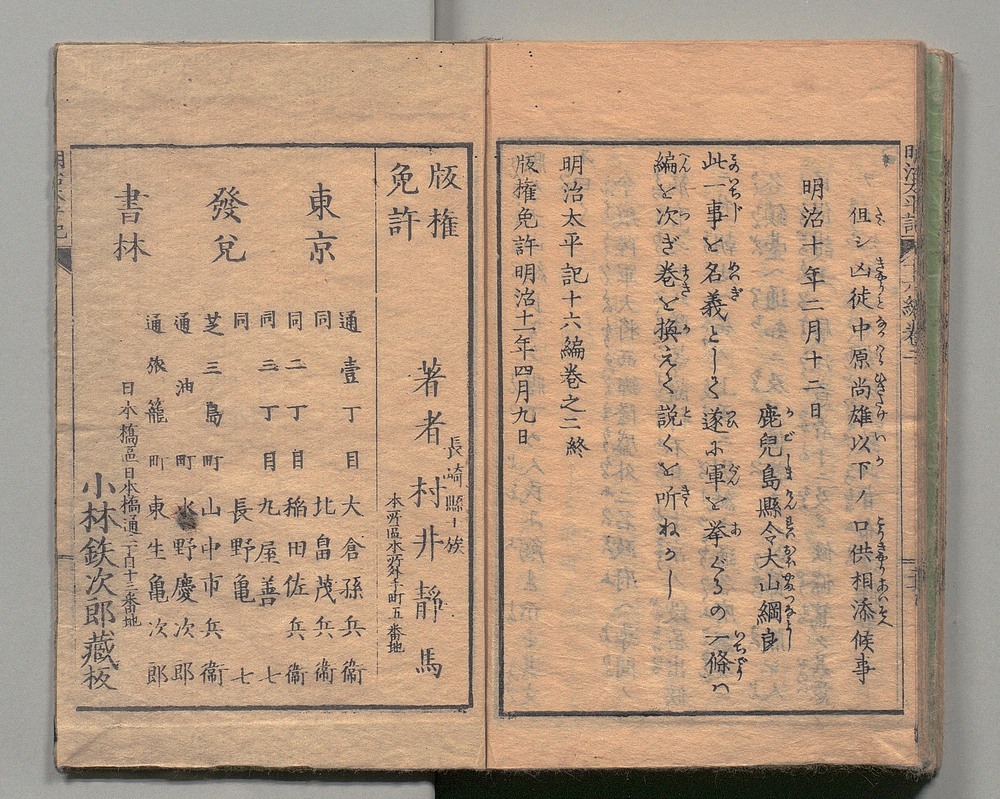 明治太平記
十六編巻二
但シ凶徒中原尚雄以下ノ口供相添候事
明治十年二月十二日
鹿兒島縣令大山綱良
此一事を名義として遂に軍を挙ぐるの一條ハ
編を次ぎ巻を換えて説くを听ねかし
明治太平記十六編巻之二終
版権免許明治十一年四月九日
版権
免許
長崎縣士族
著者 村井靜馬
本所區本所外手町五番地
東京
發兌
書林
通壹丁目 大倉孫兵衛
同 北畠茂兵衛
同二丁目 稲田佐兵衛
同三丁目 丸屋善七
同 長野亀七
芝三島町 山中市兵衛
通油町 水野慶次郎
通旅籠町 東生亀次郎
日本橋區日本橋通二丁目十三番地
小林鉄次郎藏板